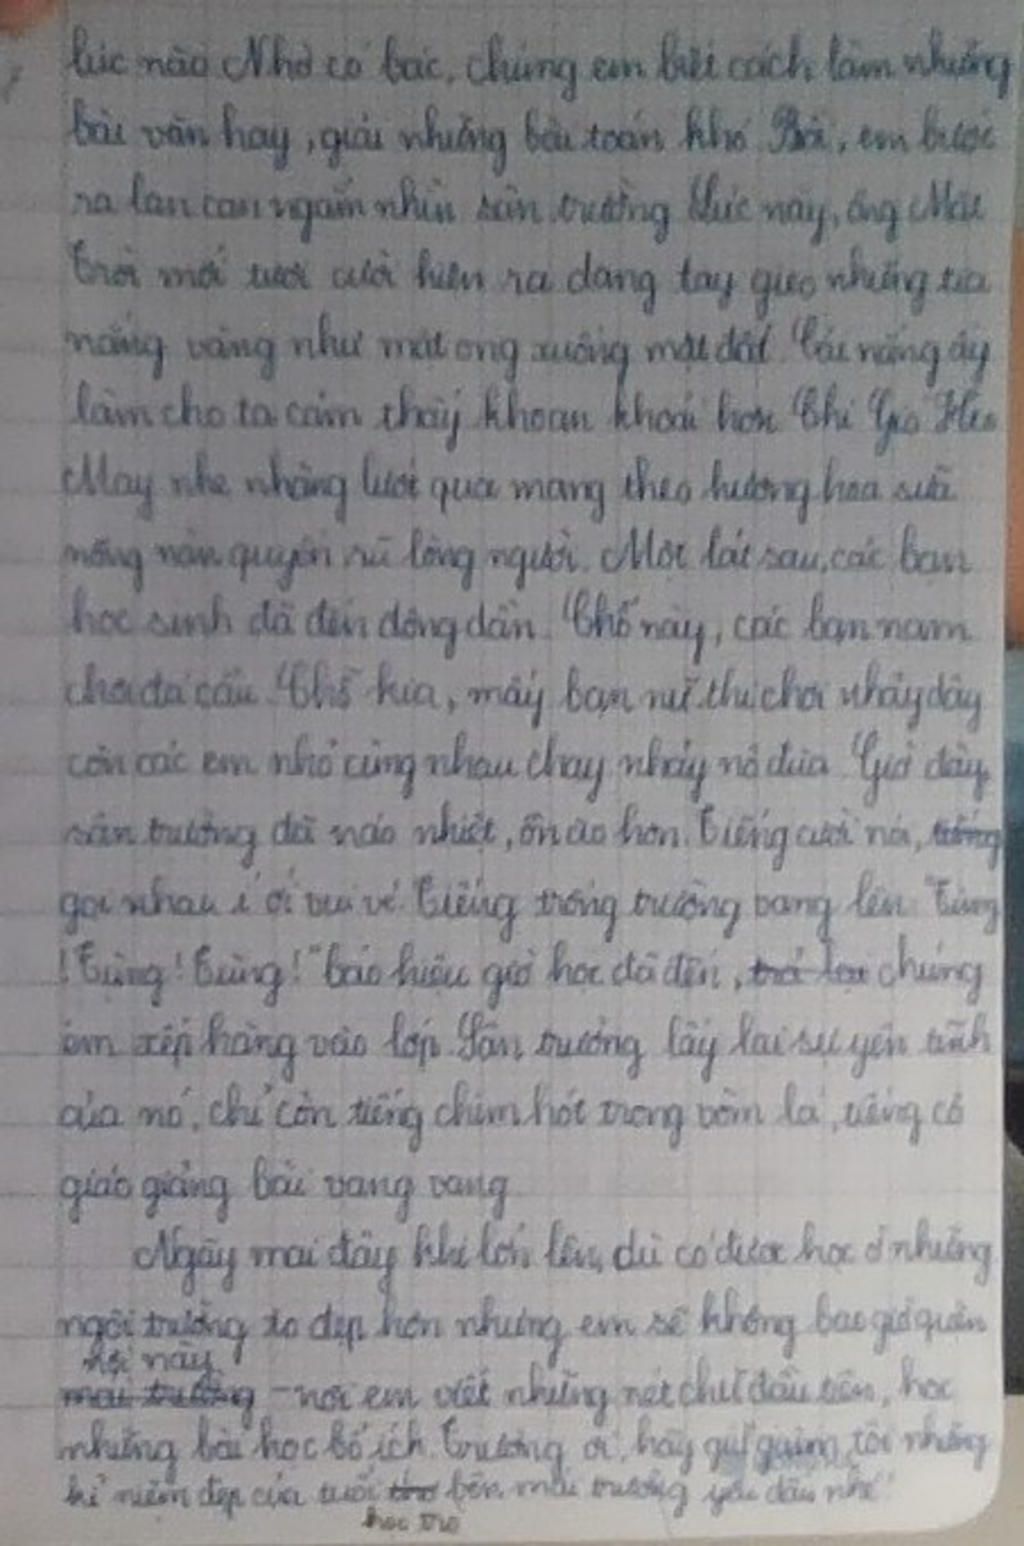 lúc nào. Nhờ có bác, chúng em biết cách làm những
bài văn hay, giải những bài toán khó. Rồi, em bước
ra lan can ngắm nhìn sân trường. Lúc này, ông Mặt
Trời mới tươi cười hiện ra dang tay gieo những tia
nắng vàng như mật ong xuống mặt đất. Cái nắng ấy
làm cho ta cảm thấy khoan khoái hơn. Chị Gió Heo
May nhẹ nhàng lướt qua mang theo hương hoa sữa
nồng nàn quyến rũ lòng người. Một lát sau, các bạn
học sinh đã đến đông dần. Chỗ này, các bạn nam
chơi đá cầu. Chỗ kia, mấy bạn nữ thì chơi nhảy dây
còn các em nhỏ cùng nhau chạy nhảy nô đùa. Giờ đây,
sân trường đã náo nhiệt, ồn ào hơn. Tiếng cười nói, tiếng
gọi nhau í ới vui vẻ. Tiếng trống trường vang lên "Tùng
! Tùng! Tùng!" báo hiệu giờ học đã đến, trả lại chúng
em xếp hàng vào lớp. Sân trường lấy lại sự yên tĩnh
của nó, chỉ còn tiếng chim hót trong vòm lá, tiếng cô
giáo giảng bài vang vang
Ngày mai đây khi lớn lên, dù có được học ở những
ngôi trường to đẹp hơn nhưng em sẽ không bao giờ quên
nơi này
mái trường - nơi em viết những nét chữ đầu tiên, học
những bài học bổ ích. Trường ơi, hãy giữ giùm tôi những
kỉ niệm đẹp của tuổi thơ bên mái trường yêu dấu nhé!
học trò